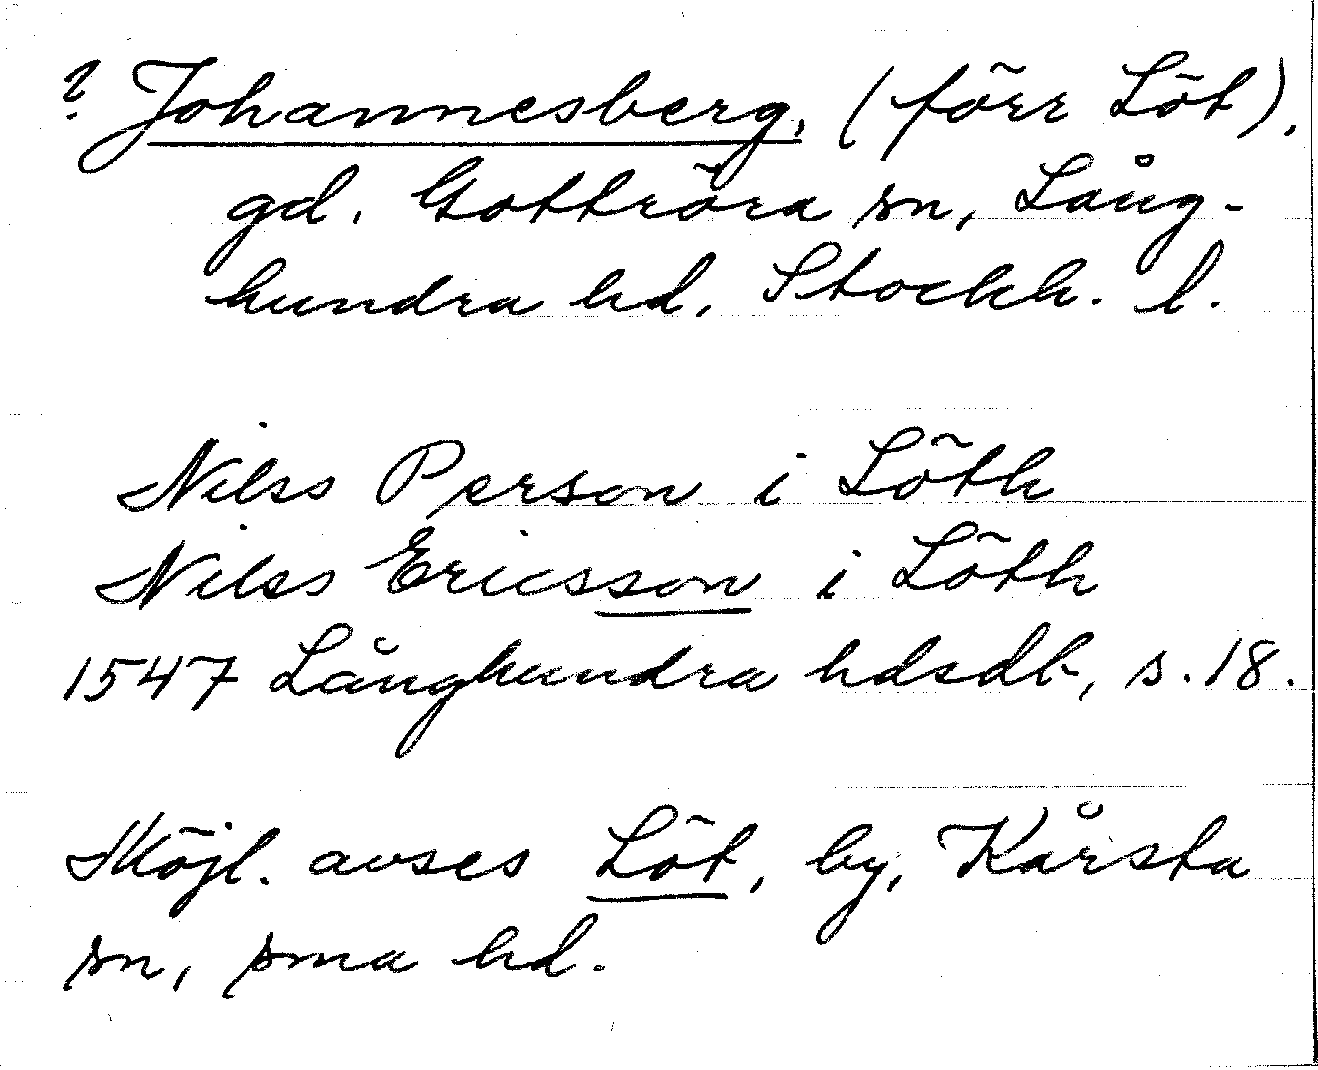 ? Johannesberg, (förr Löt),
gd. Gottröra sn, Lång-
hundra hd, Stockh. l.
Nilss Person i Löth
Nilss Ericsson i Löth
1547 Långhundra hdsdb, s. 18.
Möjl. avses Löt, by, Kårsta
sn, sma hd.